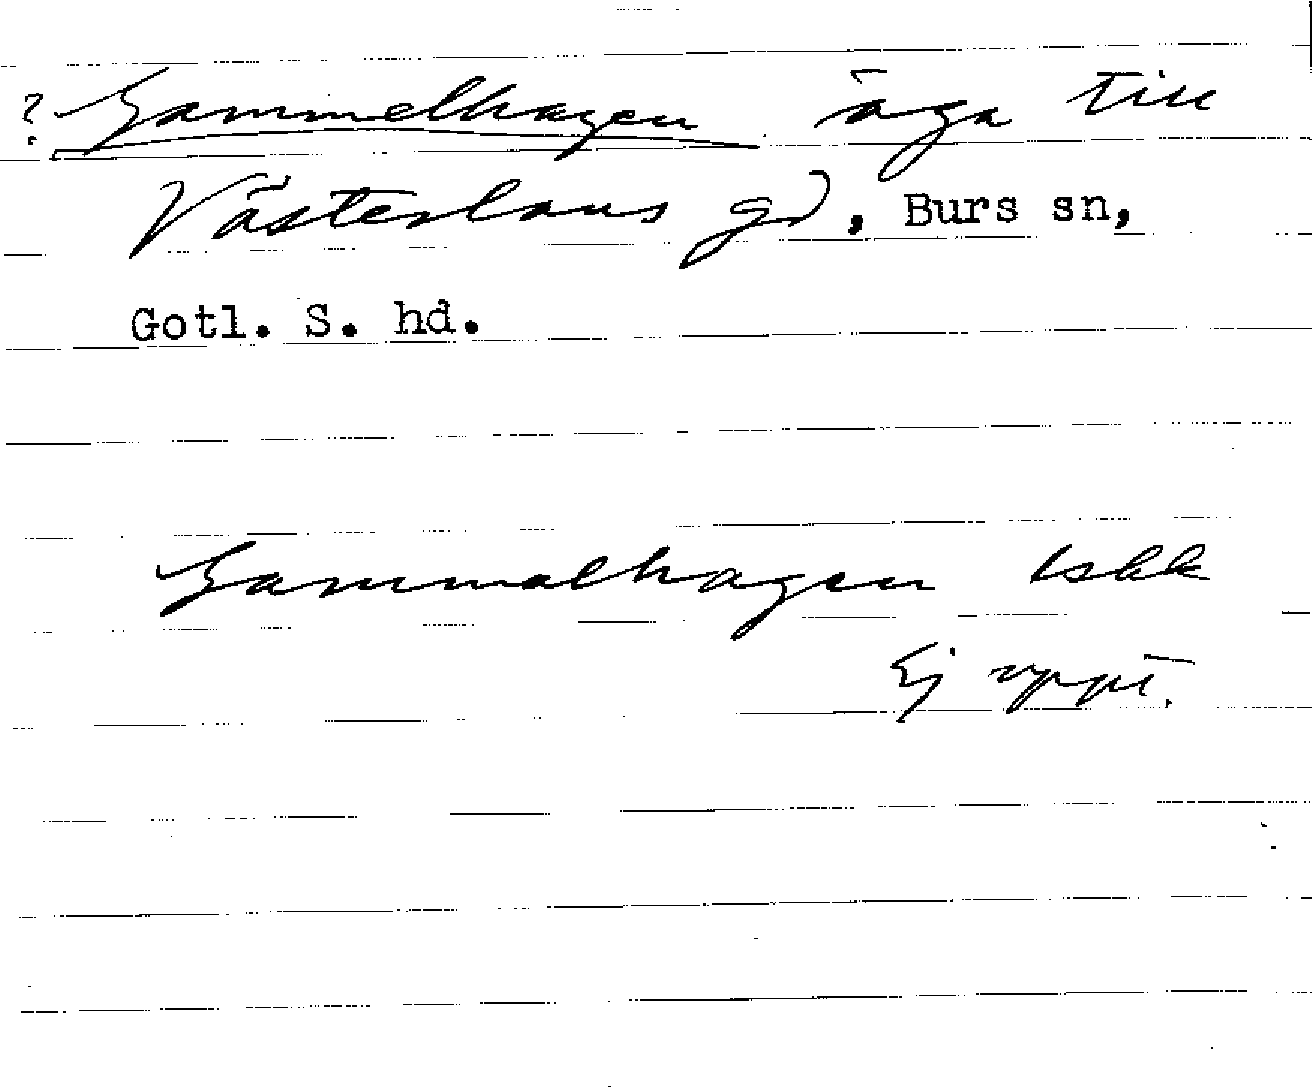 ? Gammelhagen äga till
Västerlaus gd, Burs sn,
Gotl. S. hd.
Gammalhagen
Ej uppt.